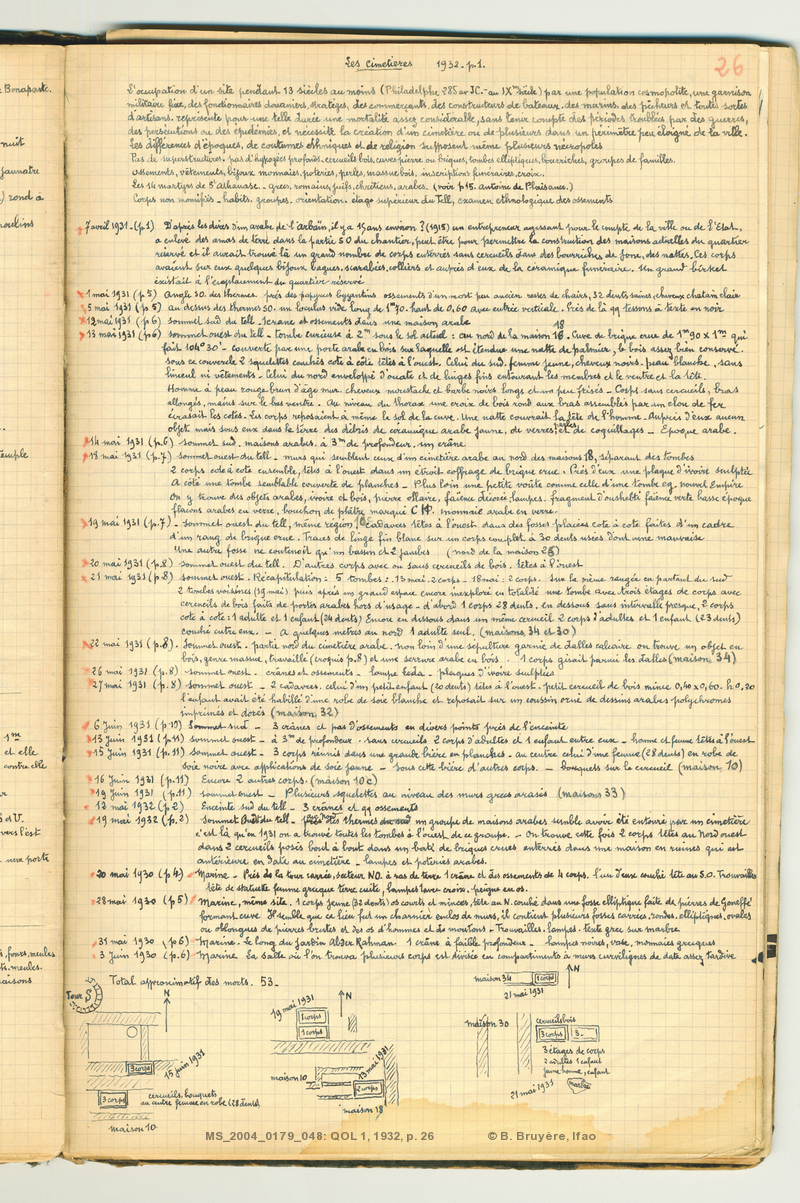 Les Cimetieres 1932. p.1.
26
L'occupation d'un site pendant 13 siècles au moins (Philadelphe 285 av JC. - au IXme siècle) par une population cosmopolite, une garnison
militaire fixe, des fonctionnaires douaniers, stratèges, des commerçants, des constructeurs de bateaux, des marins, des pêcheurs et toutes sortes
d'artisans, représente pour une telle durée une mortalité assez considérable, sans tenir compte des périodes troublées par des guerres,
des persécutions ou des épidémies, et nécessite la création d'un cimetière ou de plusieurs dans un périmètre peu éloigné de la ville.
Les différences d'époques, de coutumes ethniques et de religion supposent même plusieurs nécropoles
Pas de superstructures, pas d'hypogées profonds, cercueils bois, cuves pierre ou briques, tombes elliptiques, bourriches, groupes de familles.
Ossements, vêtements, bijoux monnaies, poteries, perles, massue bois, inscription funéraires, croix.
Les 14 martyrs de St Athanase. - grecs, romains, juifs, chrétiens, arabes. (voir p 15. Antoine de Plaisance.)
Corps non momifiés - habits. groupes. orientation. étage supérieur du tell, examen ethnologique des ossements
7 avril 1931 - (p.1) D'après les dires d'un arabe de l'Arbaïn, il y a 15 ans environ ? (1915) un entrepreneur agissant pour le compte de la ville ou de l'Etat.
a enlevé des amas de terre dans la partie SO du chantier, peut être pour permettre la construction des maisons actuelles du quartier
réservé et il aurait trouvé là un grand nombre de corps enterrés sans cercueils dans des bourriches de jonc, des nattes. Ces corps
avaient sur eux quelques bijoux bagues, scarabées, colliers et auprès d'eux de la ceramique funeraire. Un grand birket
existait à l'emplacement du quartier réservé
1 mai 1931 (p 5) Angle SO. des thermes. près des papyrus byzantins ossements d'un mort peu ancien. restes de chairs, 32 dents saines, cheveux chatain clair
5 mai 1931 (p 5) au dessus des thermes SO. un loculus vide long de 1m70. haut de 0,60 avec entrée verticale. Près de là qq tessons à texte en noir
12 mai 1931 (p 6) sommet sud du tell. 1 crane et ossements dans une maison arabe
13 mai 1931 (p 6) sommet ouest du tell - tombe curieuse à 2m sous le sol actuel : au nord de la maison 18. Cuve de brique crue de 1m90 x 1m qui
fait 104° 30' - couverte par une porte arabe en bois sur laquelle est étendue une natte de palmier, le bois assez bien conservé.
sous ce couvercle 2 squelettes couchés cote à côte têtes à l'ouest. Celui du sud. femme jeune, cheveux noirs. peau blanche, sans
linceul ni vêtements. - Celui du nord enveloppé d'ouate et de linges fins entourant les membres et le ventre et la tête.
Homme à peau rouge brun d'âge mur. cheveux moustache et barbe noirs longs et un peu frisés - Corps sans cercueils, bras
allongés, mains sur le bas ventre. Au niveau du thorax une croix de bois rond aux bras assemblés par un clou de fer
écrasait les cotes. les corps reposaient à même le sol de la cuve. Une natte couvrait la tête de l'homme. Auprès d'eux aucun
objet mais sous eux dans la terre des débris de ceramique arabe jaune, de verres, perles et de coquillages - Epoque arabe.
14 mai 1931 (p.6) sommet sud. maisons arabes. à 3m de profondeur. un crâne
18 mai 1931 (p.7) sommet ouest du tell - murs qui semblent ceux d'un cimetière arabe au nord des maisons 18, séparant des tombes
2 corps cote à cote ensemble, têtes à l'ouest dans un étroit coffrage de brique crue. Près d'eux une plaque d'ivoire sculptée
A côté une tombe semblable couverte de planches - Plus loin une petite voûte comme celle d'une tombe eg. nouvel Empire.
On y trouve des objets arabes, ivoire et bois, pierre ollaire, faïence décorée, lampes. fragment d'oushebti faïence verte basse époque
flacons arabes en verre, bouchon de plâtre marqué C. monnaie arabe en verre.
19 mai 1931 (p.7) - sommet ouest du tell, même région, cadavres têtes à l'ouest. dans des fosses placées cote à cote faites d'un cadre
d'un rang de brique crue. Traces de linge fin blanc sur un corps complet à 30 dents usées dont une mauvaise
Une autre fosse ne contenait qu'un bassin et 2 jambes (nord de la maison 25)
20 mai 1931 (p 8) sommet ouest du tell. D'autres corps avec ou sans cercueils de bois. têtes à l'ouest
21 mai 1931 (p.8) sommet ouest. Récapitulation : 5 tombes : 13 mai. 2 corps - 18 mai : 2 corps. sur la même rangée en partant du sud
2 tombes voisines (19 mai) puis après un grand espace encore inexploré en totalité une tombe avec trois étages de corps avec
cercueils de bois faits de portes arabes hors d'usage - d'abord 1 corps 28 dents. en dessous sans intervalle presque, 2 corps
cote à cote : 1 adulte et 1 enfant (24 dents) Encore en dessous dans un même cercueil 2 corps d'adultes et 1 enfant (23 dents)
couché entre eux. - A quelques metres au nord 1 adulte seul. (maisons 34 et 30)
22 mai 1931 (p.8). Sommet ouest. partie nord du cimetière arabe. non loin d'une sépulture garnie de dalles calcaire on trouve un objet en
bois, genre massue, travaillé (croquis p.8) et une serrure arabe en bois. 1 corps gisait parmi les dalles (maison 34)
26 mai 1931 (p.8) sommet ouest. crânes et ossements - loupe Leda. plaques d'ivoire sculptées
27 mai 1931 (p.8) sommet ouest - 2 cadavres. celui d'un petit enfant (20 dents) têtes à l'ouest. petit cercueil de bois mince 0,40 x 0,60. h 0,20
l'enfant avait été habillé d'une robe de soie blanche et reposait sur un coussin orné de dessins arabes polychromes
imprimés et dorés (maison 32)
6 Juin 1931 (p 10) Sommet sud - 3 crânes et pas d'ossements en divers points près de l'enceinte
13 Juin 1931 (p 11) sommet ouest - à 3m de profondeur. sans cercueils 2 corps d'adultes et 1 enfant entre eux - homme et femme têtes à l'ouest
15 Juin 1931 (p.11) sommet ouest - 3 corps réunis dans une grande bière en planches. au centre celui d'une femme (28 dents) en robe de
soie noire avec applications de soie jaune - sous cette bière d'autres corps. - bouquets sur le cercueil (maison 10)
16 Juin 1931 (p.11) Encore 2 autres corps. (maison 10c)
19 Juin 1931 (p.11) sommet ouest - Plusieurs squelettes au niveau des murs grecs arasés (maisons 33)
13 mai 1932 (p.2) Enceinte sud du tell - 3 crânes et qq ossements
19 mai 1932 (p.2) Sommet sud du tell - près des thermes au sud un groupe de maisons arabes semble avoir été entouré par un cimetière
c'est là qu'en 1931 on a trouvé toutes les tombes à l'ouest de ce groupe. - On trouve cette fois 2 corps têtes au Nord ouest
dans 2 cercueils posés bout à bout dans un bati de briques crues enterrés dans une maison en ruines qui est
antérieure en date au cimetière - lampes et poteries arabes.
20 mai 1930 (p 4) Marine. - Près de la tour carrée, secteur NO. à ras de terre 1 crâne et des ossements de 4 corps. l'un d'eux couché tête au S.O. Trouvailles
tête de statuette femme grecque terre cuite, lampes lave croix. peigne en os.
28 mai 1930 (p 5) Marine, même site. 1 corps jeune (32 dents) os courts et minces, tête au N. couché dans une fosse elliptique faite de pierres de Geneffé
formant cuve. Il semble que ce lieu fut un charnier enclos de murs, il contient plusieurs fosses carrées, rondes, elliptiques, ovales
ou oblongues de pierres brutes et des os d'hommes et de moutons - Trouvailles. lampes. texte grec sur marbre
31 mai 1930 (p 6) Marine. Le long du Jardin Abder Rahman 1 crâne à faible profondeur. - lampes noires, vase, monnaies grecques
3 Juin 1930 (p 6) Marine. La salle où l'on trouva plusieurs corps est divisée en compartiments à murs curvilignes de date assez tardive.
Total approximatif des morts. 53 -
Tour S
N
3 corps
15 juin 1931
3 corps
cercueils, bouquets
au centre femme en robe (28 dents)
maison 10
19 mai 1931
N
1 corps
1 corps
maison 10
13 mai 1931
2 corps
maison 18
maison 34
1 corps
21 mai 1931
N
maison 30
cercueils bois
3 corps
3 -
3 étages de corps
2 adultes 1 enfant
jeune homme, enfant
21 mai 1931
marbre
MS_2004_0179_048: QOL 1, 1932, p. 26 © B. Bruyère, Ifao